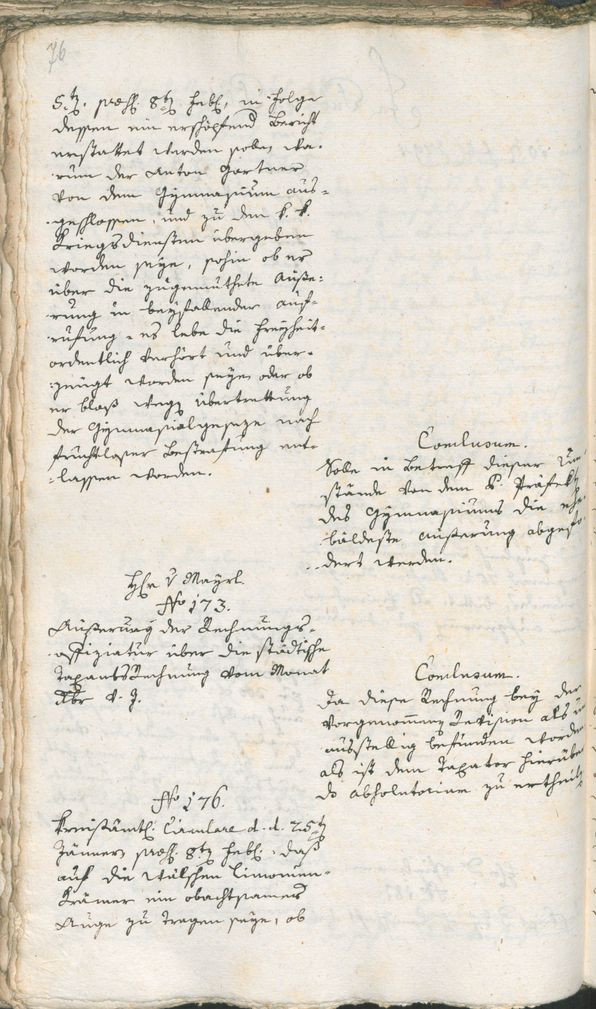 76
5tn. praes. 8tn Febr., in Folge
dessen ein erschöpfend Bericht
erstattet werden solle, wa-
rum der Anton Gartner
von dem Gymnasium aus-
geschlossen, und zu den k. k.
Kriegsdiensten übergeben
worden seye, sohin ob er
über die zugemuthete Äuße-
rung in beyfallender auf-
rufung - es lebe die Freyheit -
ordentlich verhört und über-
zeugt worden seye, oder ob
er bloß wegen Übertrettung
der Gymnasialgeseze nach
fruchtloser Bestrafung ent-
lassen worden.
Conclusum.
Solle in Betreff dieser Um
stände von dem k. Präfekt
des Gymnasiums die ehe
baldeste Äußerung abgefo
dert werden.
Hr v Mayrl.
No 173.
Äußerung der Rechnungs-
offiziatur über die städtische
Taxamts Rechnung vom Monat
Xbr v. J.
Conclusum.
Da diese Rechnung bey der
vorgenommenen Revision als
ausstellig befunden worden
als ist dem Taxator hierüber
do absolutorium zu ertheilen
No 176.
Kreisämtl. Circulare d. d. 25tn
Jänners praes. 8tn Febr. daß
auf die wälschen Limonien-
Krämer ein obachtsames
Auge zu tragen seye, ob